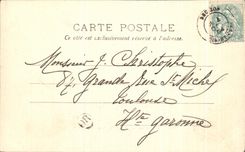 CARTE POSTALE
Ce côté est exclusivement réservé à l'adresse.
Monsieur J. Christophe
87, Grande Rue St Michel
Toulouse
Hte Garonne